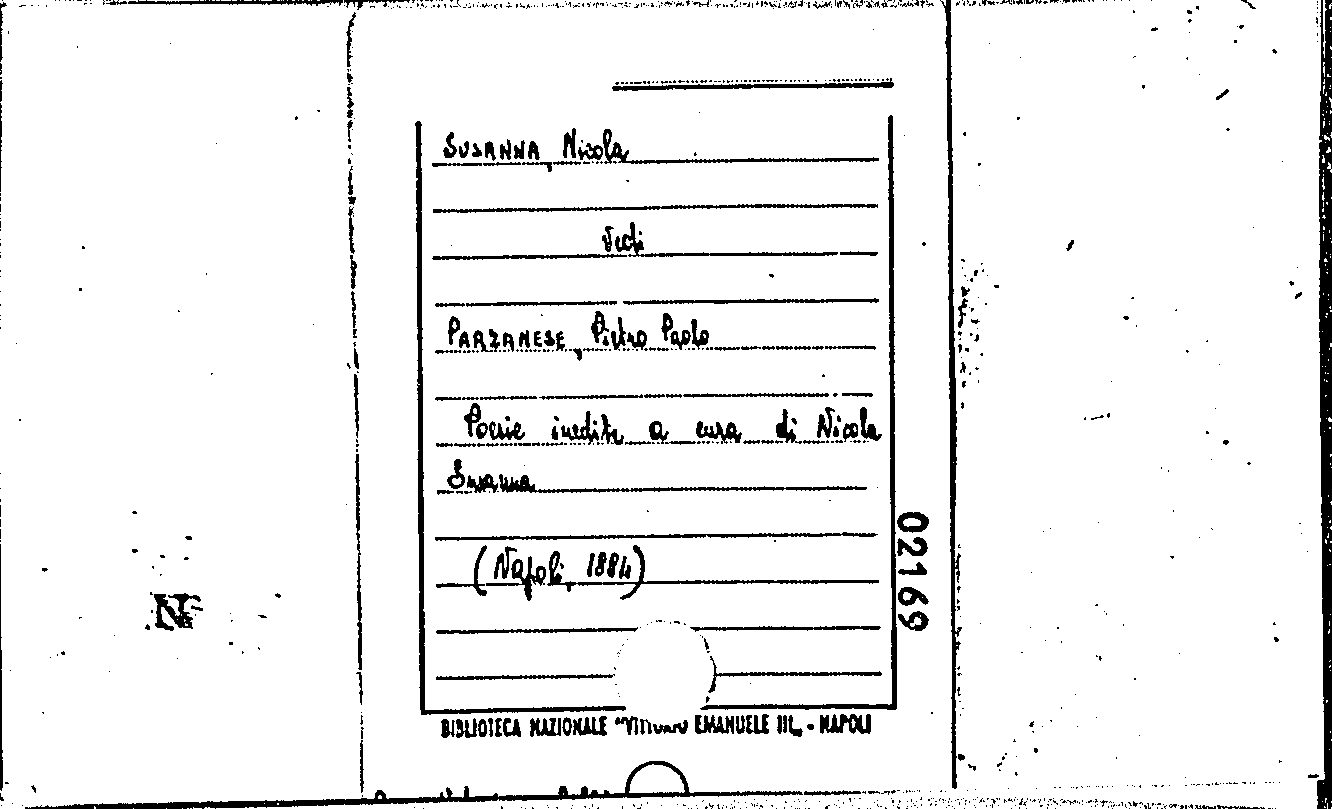 SUSANNA, Nicola
Vedi
PARZANESE, Pietro Paolo
Poesie inedite a cura di Nicola
Susanna
(Napoli, 1884)
02169
BIBLIOTECA NAZIONALE "VITTORIO EMANUELE III„ - NAPOLI